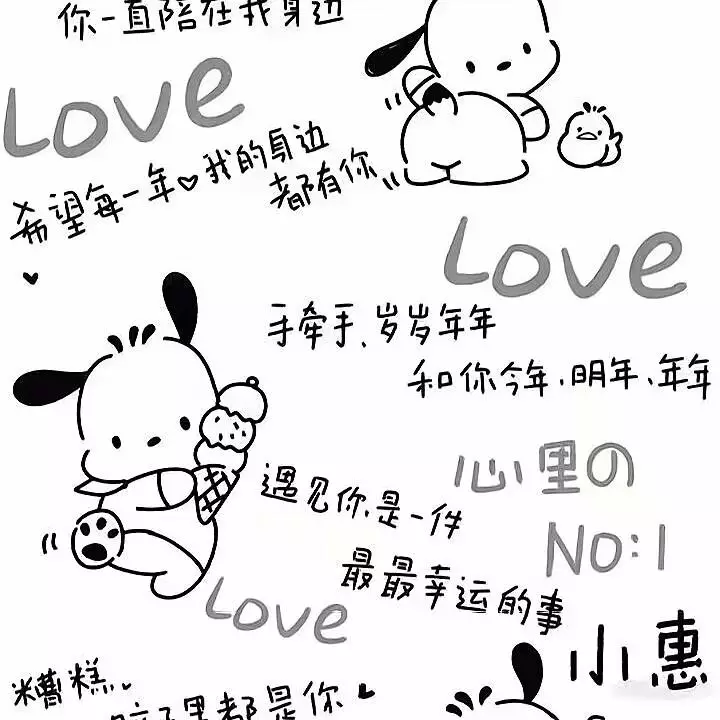 你一直陪在我身边
Love
希望每一年♥我的身边
都有你
Love
手牵手、岁岁年年
和你今年、明年、年年
心里の
NO:1
遇见你是一件
最最幸运的事
Love
小惠
糟糕、
脑子里都是你